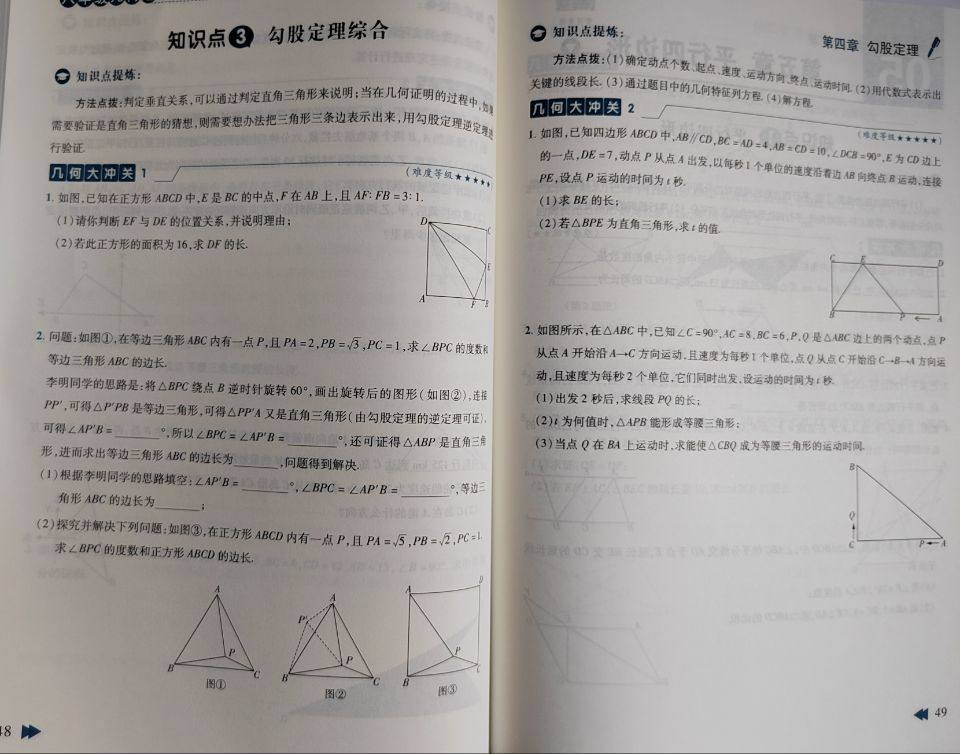 知识点3 勾股定理综合
知识点提炼:
方法点拨:判定垂直关系,可以通过判定直角三角形来说明;当在几何证明的过程中,如果
需要验证是直角三角形的猜想,则需要想办法把三角形三条边表示出来,用勾股定理逆定理进
行验证.
几何大冲关 1
(难度等级★★★★★
1. 如图,已知在正方形 ABCD 中,E 是 BC 的中点,F 在 AB 上,且 AF:FB=3:1.
(1)请你判断 EF 与 DE 的位置关系,并说明理由;
(2)若此正方形的面积为 16,求 DF 的长.
D
C
E
A
F
B
2. 问题:如图①,在等边三角形 ABC 内有一点 P,且 PA=2,PB=√3,PC=1,求∠BPC 的度数和
等边三角形 ABC 的边长.
李明同学的思路是:将△BPC 绕点 B 逆时针旋转 60°,画出旋转后的图形(如图②),连接
PP′,可得△P′PB 是等边三角形,可得△PP′A 又是直角三角形(由勾股定理的逆定理可证),
可得∠AP′B=______°,所以∠BPC=∠AP′B=______°,还可证得△ABP 是直角三角
形,进而求出等边三角形 ABC 的边长为______,问题得到解决.
(1)根据李明同学的思路填空:∠AP′B=______°,∠BPC=∠AP′B=______°,等边三
角形 ABC 的边长为______;
(2)探究并解决下列问题:如图③,在正方形 ABCD 内有一点 P,且 PA=√5,PB=√2,PC=1.
求∠BPC 的度数和正方形 ABCD 的边长.
A
B
P
C
图①
A
P′
P
B
C
图②
A
D
P
B
C
图③
48
知识点提炼:
第四章 勾股定理
方法点拨:(1)确定动点个数、起点、速度、运动方向、终点、运动时间.(2)用代数式表示出
关键的线段长.(3)通过题目中的几何特征列方程.(4)解方程.
几何大冲关 2
(难度等级★★★★★)
1. 如图,已知四边形 ABCD 中,AB∥CD,BC=AD=4,AB=CD=10,∠DCB=90°,E 为 CD 边上
的一点,DE=7,动点 P 从点 A 出发,以每秒 1 个单位的速度沿着边 AB 向终点 B 运动,连接
PE,设点 P 运动的时间为 t 秒.
(1)求 BE 的长;
(2)若△BPE 为直角三角形,求 t 的值.
C
E
D
B
P
A
2. 如图所示,在△ABC 中,已知∠C=90°,AC=8,BC=6,P,Q 是△ABC 边上的两个动点,点 P
从点 A 开始沿 A→C 方向运动,且速度为每秒 1 个单位,点 Q 从点 C 开始沿 C→B→A 方向运
动,且速度为每秒 2 个单位,它们同时出发,设运动的时间为 t 秒.
(1)出发 2 秒后,求线段 PQ 的长;
(2)t 为何值时,△APB 能形成等腰三角形;
(3)当点 Q 在 BA 上运动时,求能使△CBQ 成为等腰三角形的运动时间.
B
Q
C
P
A
49